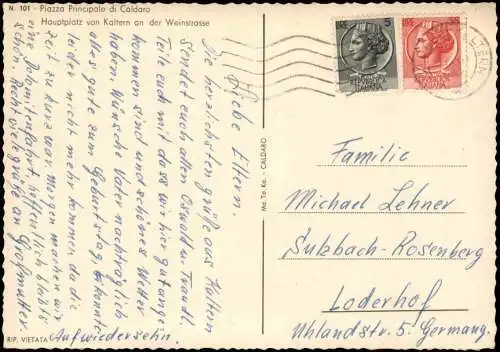 N. 101 - Piazza Principale di Caldaro
Hauptplatz von Kaltern an der Weinstrasse
Liebe Eltern.
Die herzlichsten grüße aus Kaltern
Sendet euch allen Oswald u. Traudl.
Teile euch mit da ss wir hier gut ange
kommen sind und schönes Wetter
haben. Wünsche Vater nachträglich
alles gute zum Geburtstag, konnte
leider nicht mehr kommen da die
zeit zu kurz war. Morgen machen wir
eine Dolomitenfahrt, hoffentlich bleibts
schön. Recht viele grüße an Großmutter.
Aufwiedersehn.
RIP. VIETATA
Ma. To Ka. - CALDARO
5
ITALIANA
ITALIANA
Familie
Michael Lehner
Sulzbach-Rosenberg
Loderhof
Uhlandstr. 5. Germany.